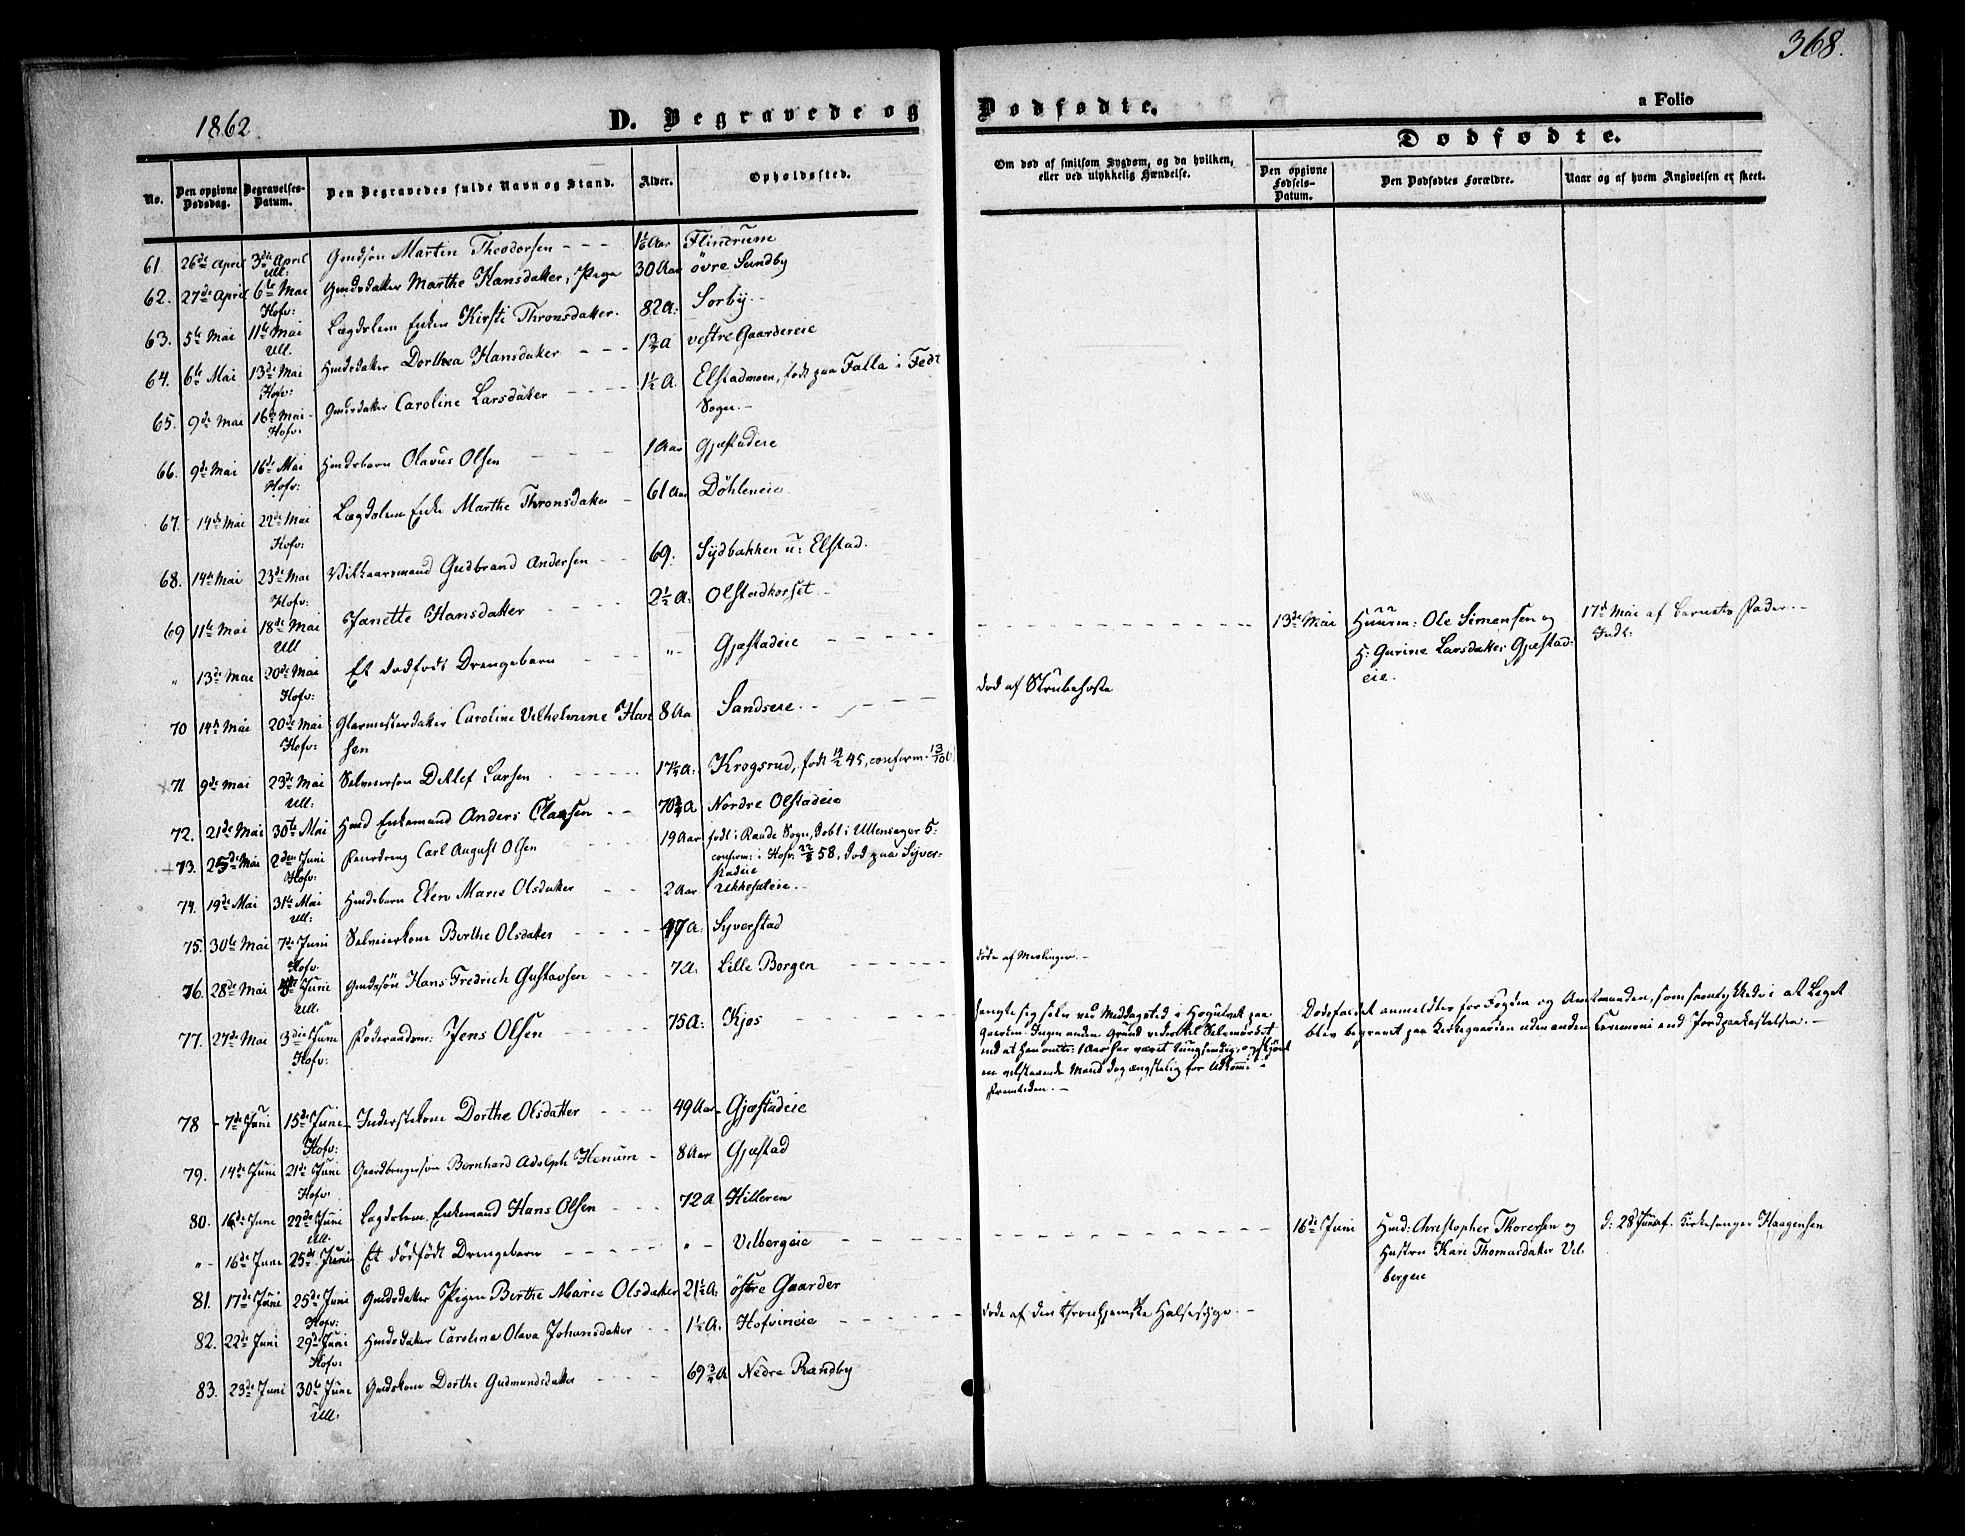 368.
1862
D. Begravede og Dødfødte.
a Folio
No.
Den opgivne Dødsdag.
Begravelses-Datum.
Den Begravedes fulde Navn og Stand.
Alder.
Opholdssted.
Om død af smitsom Sygdom, og da hvilken,
eller ved ulykkelig Hændelse.
Dødfødte.
Den opgivne Fødsels-Datum.
Den Dødfødtes Forældre.
Naar og af hvem Angivelsen er skeet.
61. 26de April 3die April Ull: Gmdsøn Martin Theodorsen - - - Aar Flindrum
62. 27de April 6te Mai Hofv: Gmdsdatter Marthe Hansdatter, Pige 30 Aar övre Sundby
63. 5te Mai 11te Mai Ull. Lægdslem Enken Kirsti Thronsdatter. 82 A: Sörby. -
64. 6te Mai 13de Mai Hofv: Hmdsdatter Dorthea Hansdatter - - - vestre Gaardereie
65. 9de Mai 16de Mai Hofv: Gmdsdatter Caroline Larsdatter - - - 1½ A. Elstadmoen, født paa Falla i Fedt
Sogn. -
66. 9de Mai 16de Mai Hofv: Hmdsbarn Olavus Olsen - - - 1 Aar Gjæstadeie
67. 14de Mai 22de Mai Hofv: Lægdslem Enke Marthe Thronsdatter - 61 Aar Döhleneie
68. 14de Mai 23de Mai Hofv: Vilkaarsmand Gudbrand Andersen - - 69. Sydbakken u: Elstad.
69 11te Mai 18de Mai Ull Janette Hansdatter - - - - 2½ A: Olstadkorset -
" 13de Mai 20de Mai Hofv: Et dødfødt Drengebarn - - - " - Gjæstadeie - - - - 13de Mai Huusm: Ole Simensen og 17de Mai af Barnets Fader. -
H: Gurine Larsdatter Gjæstad-
eie.
70 14de Mai 20de Mai Hofv: Glarmesterdatter Caroline Vilhelmine Han 8 Aar Sandseie. - - - død af Strubehoste
sen
71 9de Mai 23de Mai Ull: Selveiersøn Ditlef Larsen - - - - 17¼ A: Krogsrud, født 45, conferm.
72. 21de Mai 30te Mai Hmd Enkemand Anders Claesen - - 70¾ A Nordre Olstadeie
73. 25de Mai 2den Juni Hofv: Carl August Olsen 19 Aar født i Raade Sogn, døbt i Ullensager 5:
conferm: i Hofv: 58, død paa Syver-
stadeie
74. 19de Mai 31te Mai Ull: Hmdsbarn Elen Marie Olsdatter - - 2 Aar Ukkestadeie. -
75. 30te Mai 7de Juni Hofv. Selveierkone Berthe Olsdatter - - - - 47 A: Syverstad
76. 28de Mai Juni Ull. Gmdssøn Hans Fredrich Gustavsen - - - 7 A: Lille Borgen - - - - døde af Meslinger. -
77. 27de Mai 3die Juni Hofv: Föderaadsm: Jens Olsen - - - - 75 A: Kjos - - - -
hengte sig selv ved Middagstid i paa
Gaarden. Ingen anden Grund vides til Selvmordet
end at han omtr: 1 Aar har været tungsindig, og skjønt
en velstaaende Mand dog ængstelig for Udkomme i
Fremtiden. -
Dødsfaldet anmeldtes for Fogden og Amtmanden, som samtykkede i at Liget
blev begravet paa Kirkegaarden uden anden Ceremoni end Jordpaakastelsen. -
78 - 7de Juni 15de Juni Hofv: Inderstekone Dorthe Olsdatter - - - 49 Aar - Gjæstadeie
79. 14de Juni 21de Juni Hofv. Gaardbrugersøn Bernhard Adolph Henum - 8 Aar Gjæstad
80. 16de Juni 22de Juni Ull. Lægdslem Enkemand Hans Olsen - - - 72 A Hilleren
" - 16de Juni 25de Juni Et dødfødt Drengebarn - - - - " - Vilbergeie - - - - 16de Juni Hmd: Christopher Thorersen og d: 28 Juni af. Kirkesanger Haagensen
Hustru Kari Thomasdatter Vil-
bergeie
81. 17de Juni 25de Juni Hofv: Gmdsdatter Pigen Berthe Marie Olsdatter 21½ A: östre Gaarder
82. 22de Juni 29de Juni Hofv: Hmdsdatter Carolina Olava Johansdatter - - 1½ A. Hofvineie - - - - døde af den thronhjemske Halsesyge. -
83. 23de Juni 30te Juni Ull. Gmdskone Dorthe Gudmundsdatter - - - - 69¾ A Nedre Randby